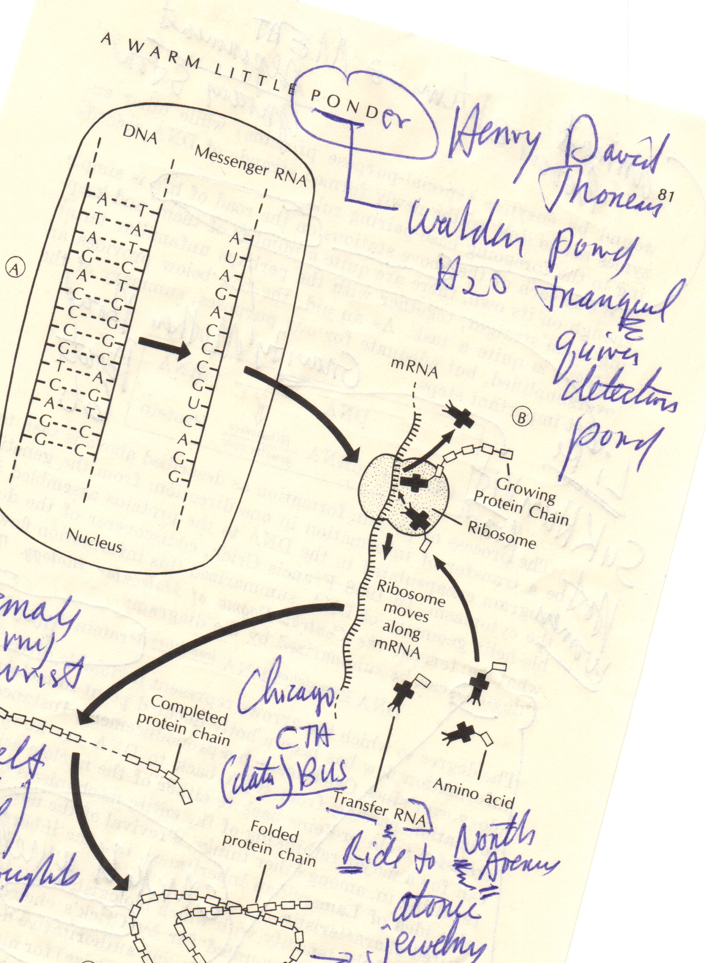 A WARM LITTLE PONDer
Henry David
Thoreau
81
Walden Pond
H2O tranquil
quiver
detection
pond
DNA
Messenger RNA
A T
T A
A T
G C
A T
C G
C G
C G
G C
T A
C G
A T
G C
G C
A
U
A
G
A
C
C
C
G
U
C
A
G
G
A
Nucleus
mRNA
B
Growing
Protein Chain
Ribosome
Ribosome
moves
along
mRNA
Completed
protein chain
Chicago
CTA
(data) BUS
Transfer RNA
Amino acid
Ride to North
Avenue
Folded
protein chain
atomic
jewelry